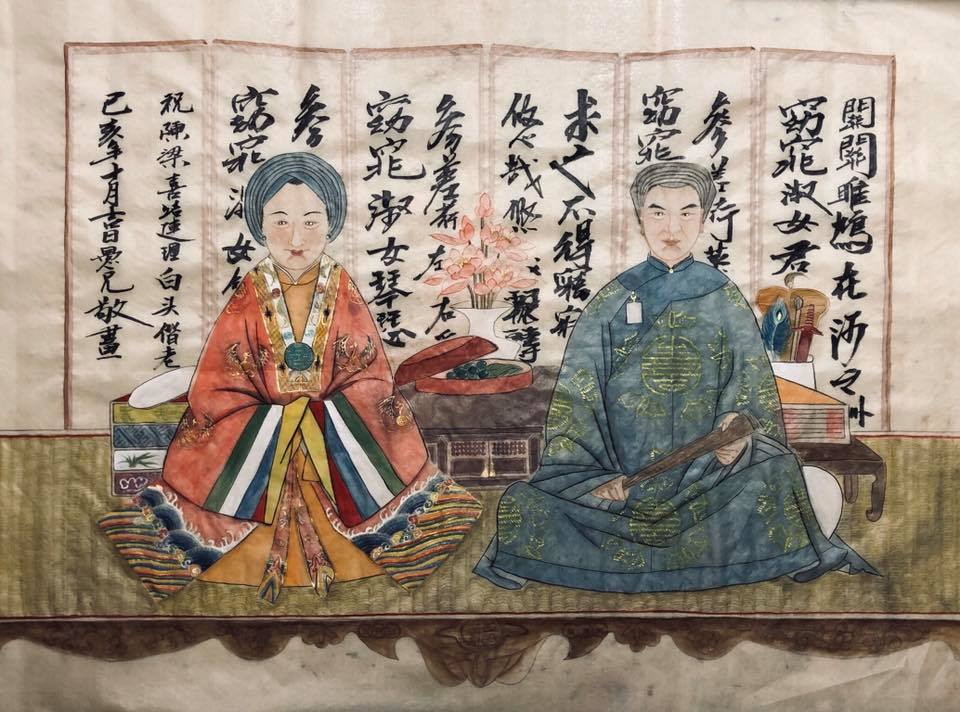 關關雎鳩在河之州
窈窕淑女君
參差荇菜
窈窕
求之不得寤寐
悠哉悠輾轉
參差荇左右
窈窕淑女琴瑟
參
窈窕淑女
祝陳梁喜結連理白头偕老
己亥年十月吉日兄敬畫